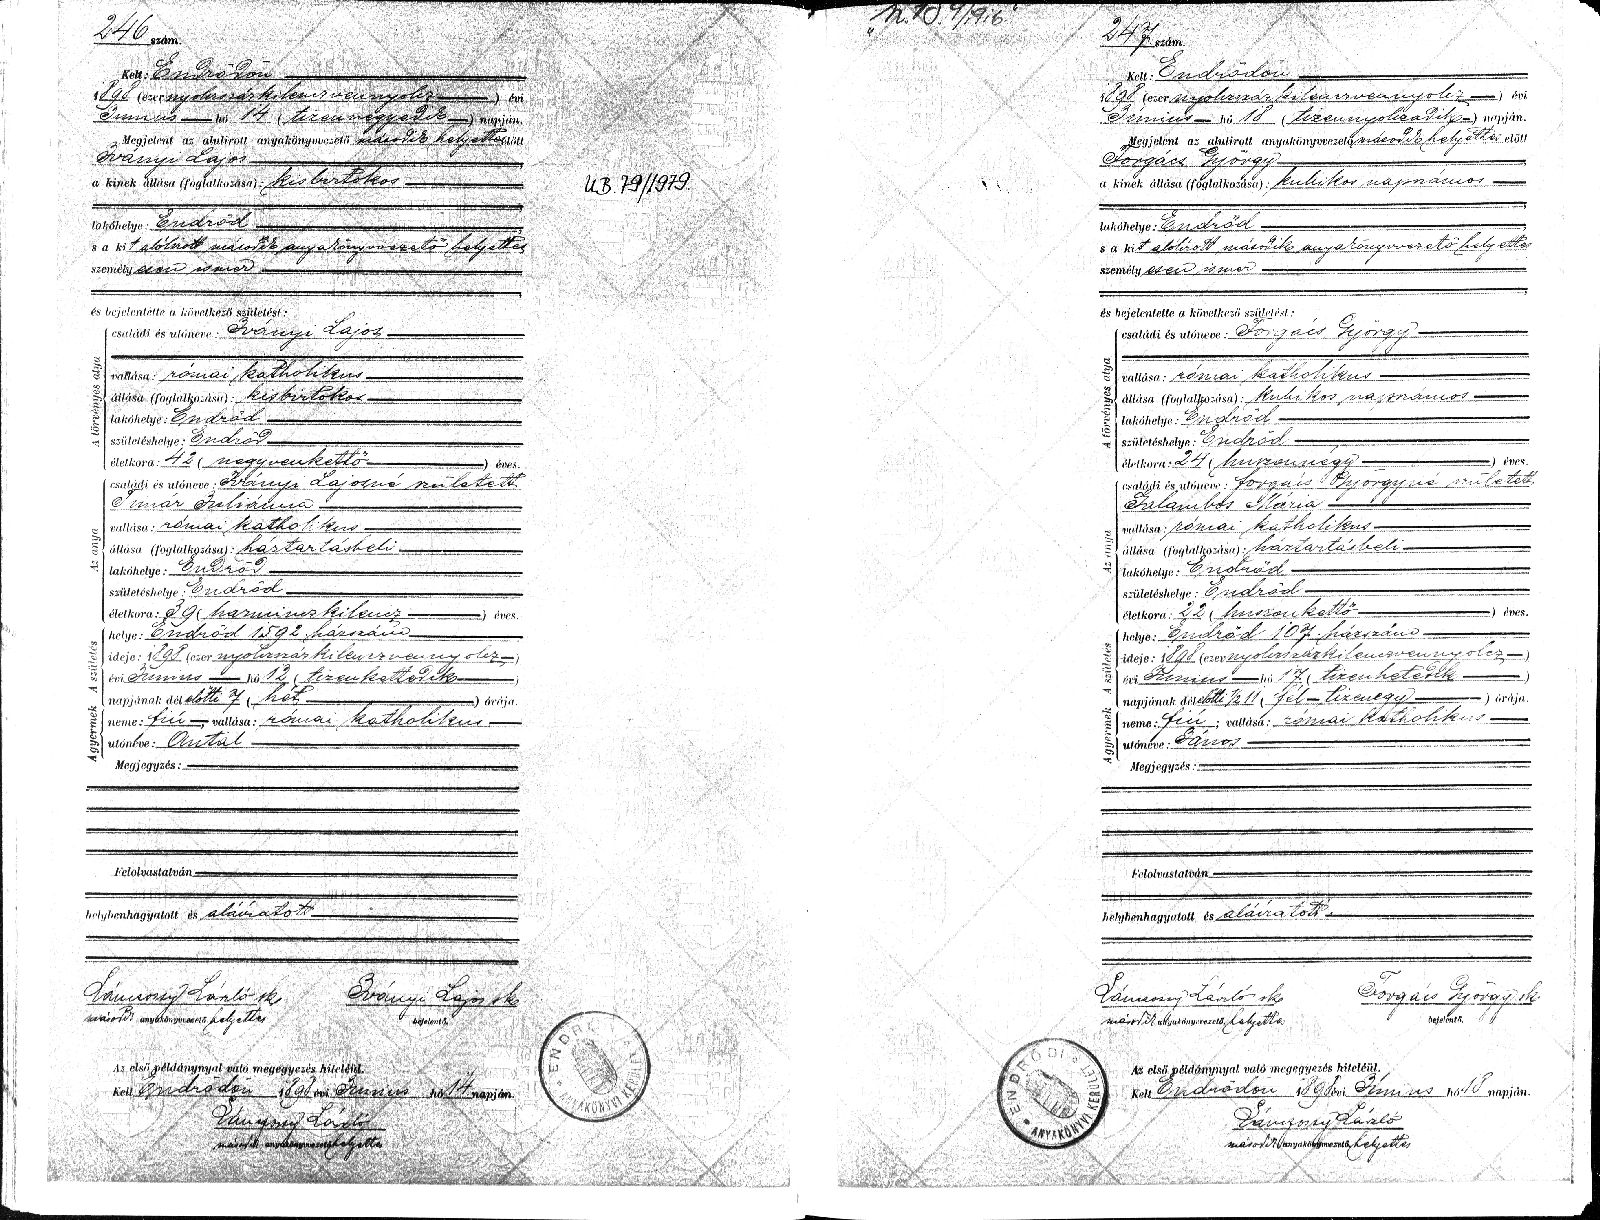 246 szám.
Kelt: Endrődön
1898 (ezer nyolcszázkilenczvennyolcz) évi
Június hó 14 (tizennegyedik) napján.
Megjelent az alulirott anyakönyvvezető második helyettes előtt
Iványi Lajos
a kinek állása (foglalkozása): kisbirtokos
lakóhelye: Endrőd
s a kit alólirott második anyakönyvvezető helyettes
személyesen ismer
és bejelentette a következő születést:
A törvényes atya
családi és utóneve: Iványi Lajos
vallása: római katholikus
állása (foglalkozása): kisbirtokos
lakóhelye: Endrőd
születéshelye: Endrőd
életkora: 42 (negyvenkettő) éves.
Az anya
családi és utóneve: Iványi Lajosné született
Timár Juliánna
vallása: római katholikus
állása (foglalkozása): háztartásbeli
lakóhelye: Endrőd
születéshelye: Endrőd
életkora: 39 (harminczkilencz) éves.
A születés
helye: Endrőd 1592 házszám
ideje: 1898 (ezer nyolcszázkilenczvennyolcz)
évi Június hó 12 (tizenkettedik)
napjának délelőtti 7 (hét) órája.
A gyermek
neme: fiú; vallása: római katholikus
utóneve: Antal
Megjegyzés:
Felolvastatván
helybenhagyatott és aláíratott
László sk Iványi Lajos sk
második anyakönyvvezető helyettes bejelentő.
Az első példánynyal való megegyezés hiteléül.
Kelt Endrődön 1898 évi Június hó 14 napján.
László
második anyakönyvvezető helyettes
U.B. 79/1979.
ANYAKÖNYVI KERÜLET
247 szám.
Kelt: Endrődön
1898 (ezer nyolcszázkilenczvennyolcz) évi
Június hó 18 (tizennyolczadik) napján.
Megjelent az alulirott anyakönyvvezető második helyettes előtt
Forgács György
a kinek állása (foglalkozása): kubikos napszámos
lakóhelye: Endrőd
s a kit alólirott második anyakönyvvezető helyettes
személyesen ismer
és bejelentette a következő születést:
A törvényes atya
családi és utóneve: Forgács György
vallása: római katholikus
állása (foglalkozása): kubikos napszámos
lakóhelye: Endrőd
születéshelye: Endrőd
életkora: 24 (huszonnégy) éves.
Az anya
családi és utóneve: Forgács Györgyné született
Galambos Mária
vallása: római katholikus
állása (foglalkozása): háztartásbeli
lakóhelye: Endrőd
születéshelye: Endrőd
életkora: 22 (huszonkettő) éves.
A születés
helye: Endrőd 107 házszám
ideje: 1898 (ezer nyolcszázkilenczvennyolcz)
évi Június hó 17 (tizenhetedik)
napjának délelőtti 1/2 11 (fél tizenegy) órája.
A gyermek
neme: fiú; vallása: római katholikus
utóneve: János
Megjegyzés:
Felolvastatván
helybenhagyatott és aláíratott
László sk Forgács György sk
második anyakönyvvezető helyettes bejelentő.
Az első példánynyal való megegyezés hiteléül.
Kelt Endrődön 1898 évi Június hó 18 napján.
László
második anyakönyvvezető helyettes
ENDRŐDI ANYAKÖNYVI KERÜLET